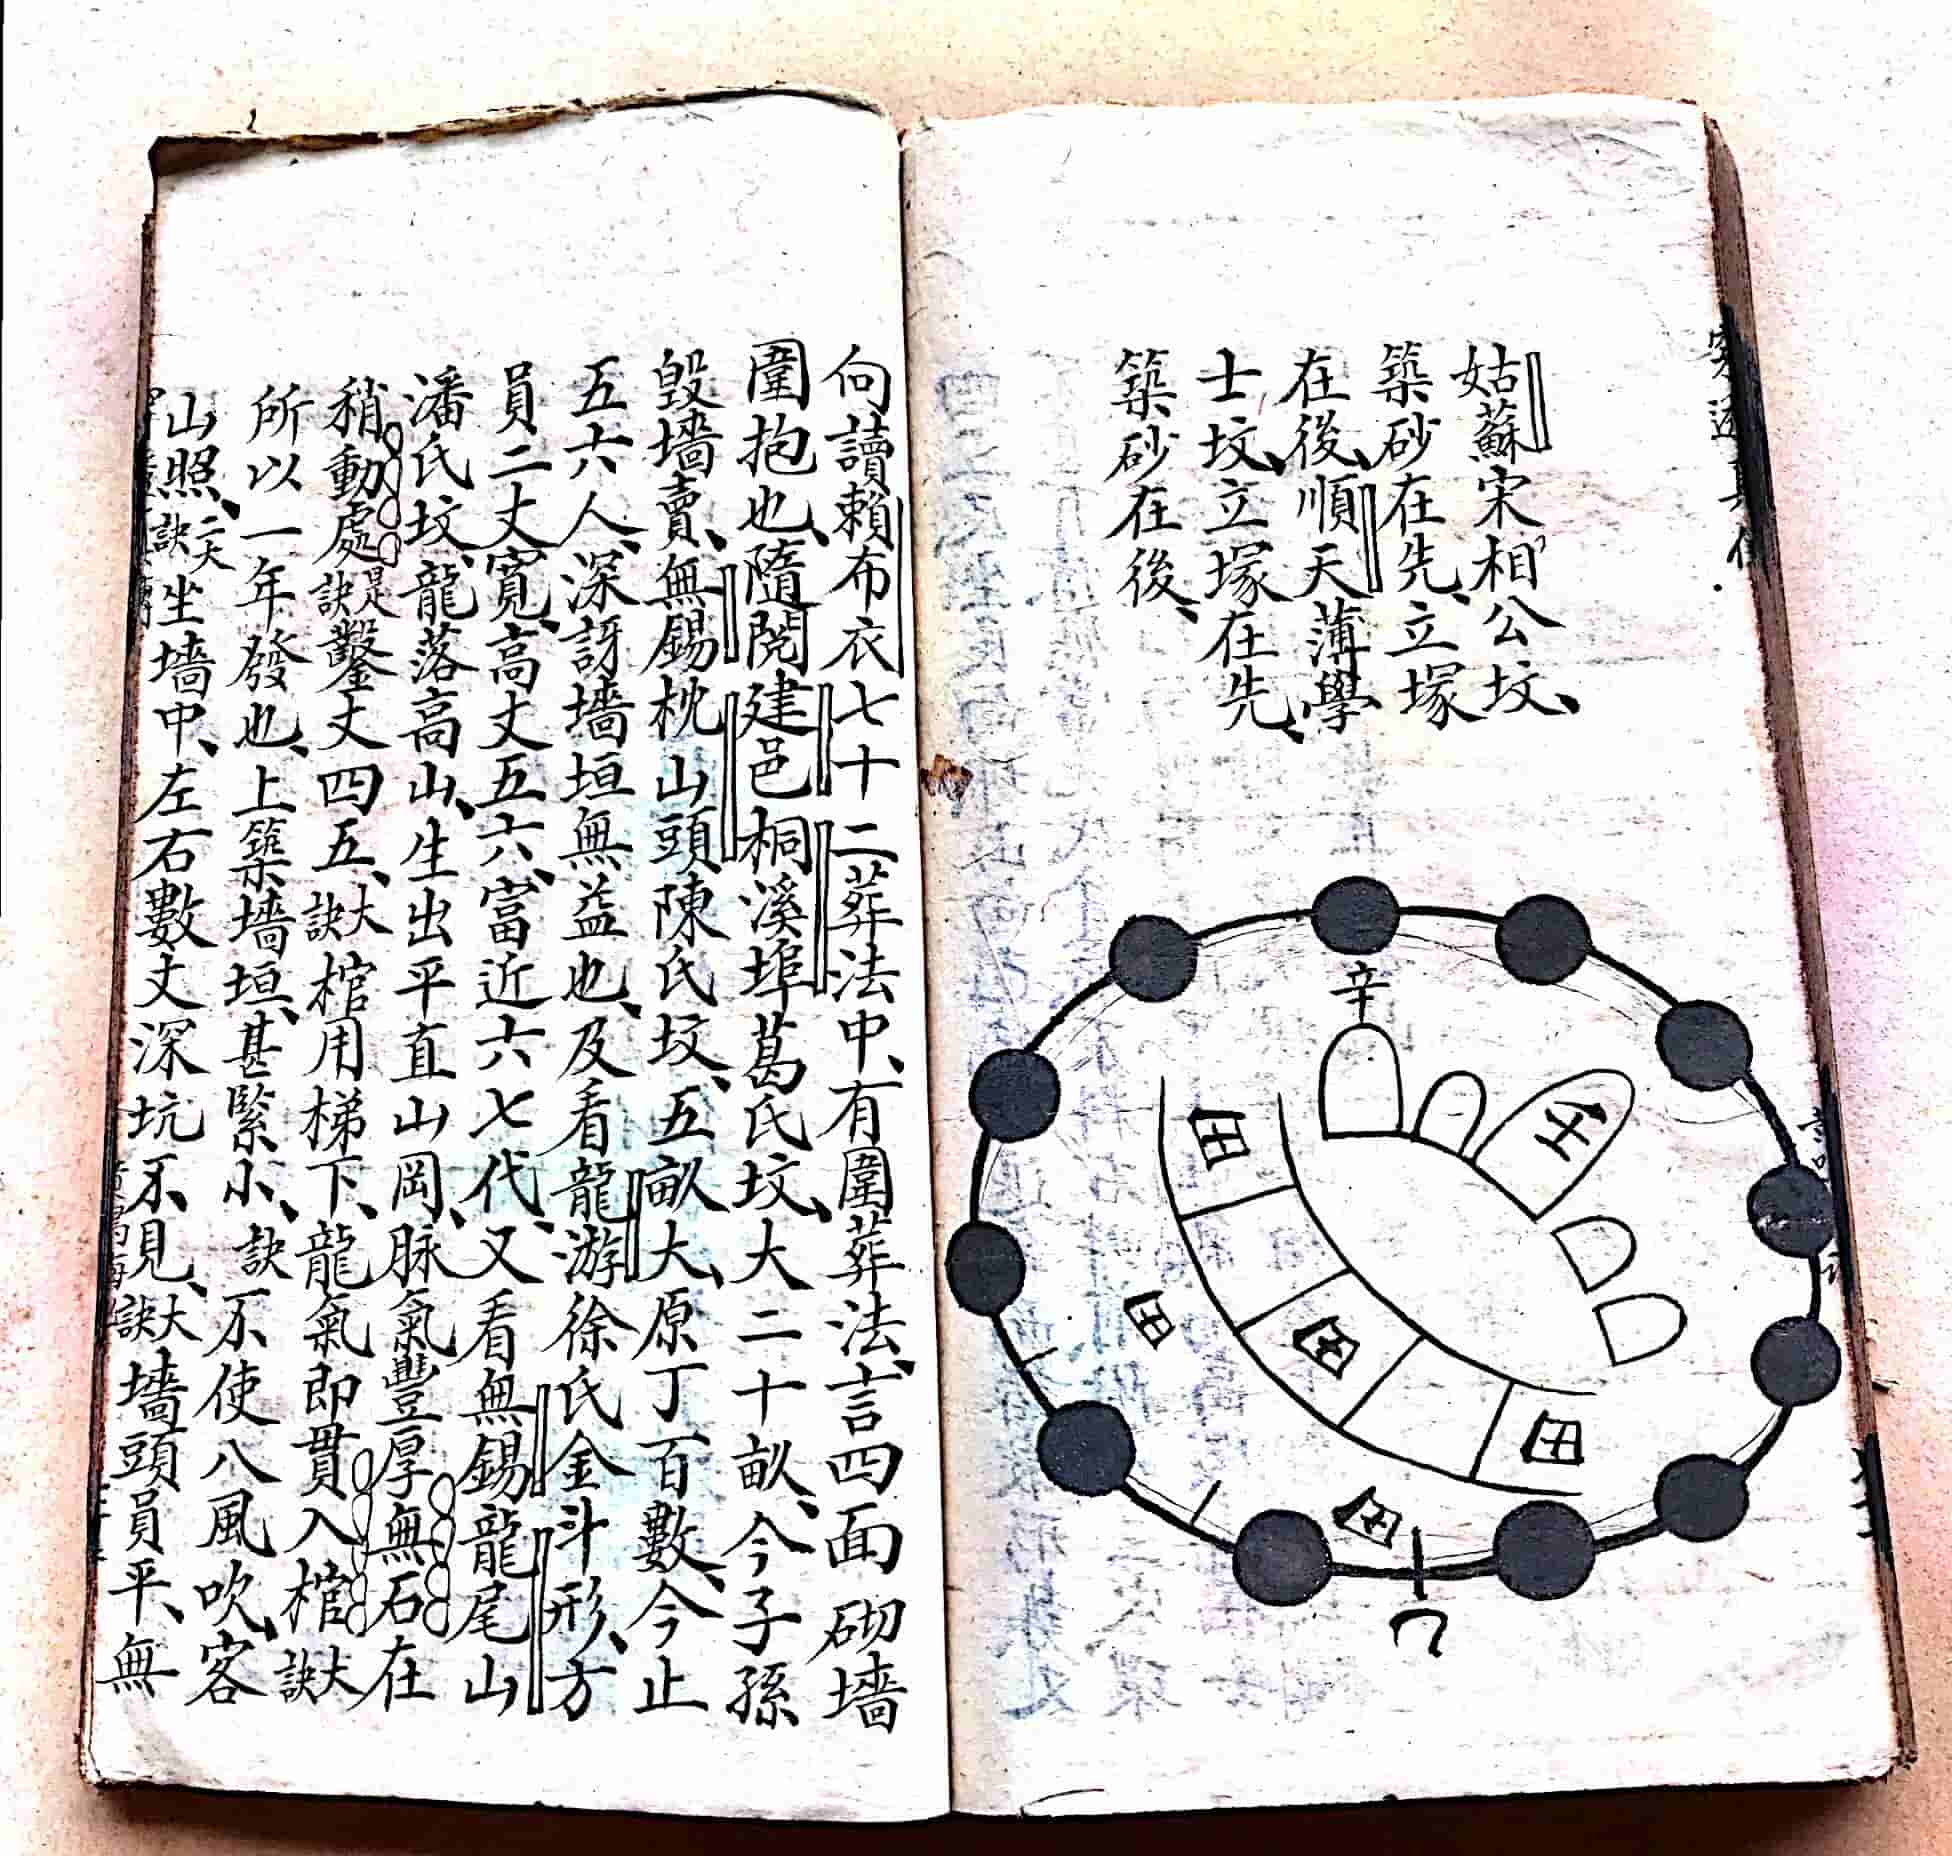 姑蘇宋相公坟、
築砂在先、立塚
在後、順天薄學
士坟、立塚在先、
築砂在後、
辛
主
田
田
田
田
田
向讀賴布衣七十二葬法中、有圍葬法、言四面砌墻
圍抱也、隨閱建邑桐溪埠葛氏坟、大二十畝、今子孫
毀墻賣、無錫枕山頭陳氏坟、五畝大、原丁百數、今止
五六人、深訝墻垣無益也、及看龍游徐氏金斗形、方
員二丈寬、高丈五六、富近六七代、又看無錫龍尾山
潘氏坟、龍落高山、生出平直山岡、脉氣豐厚無石在
稍動處是訣鑿丈四五、大訣棺用梯下、龍氣即貫入棺大訣
所以一年發也、上築墻垣、甚緊小、訣不使八風吹、客
山照、二大訣坐墻中、左右數丈深坑不見、大訣墻頭員平、無